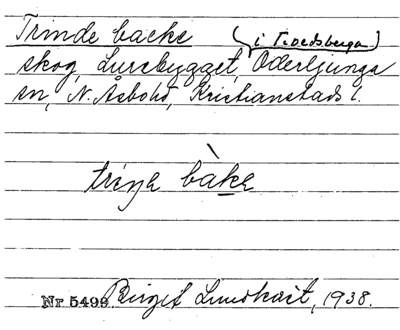 Trinde backe (i Troedsberga)
skog, Lurebygget, Oderljunga
sn, N. Åsbo hd, Kristianstads l.
trine bàke
Nr 5499 Birgit Lundkvist, 1938.